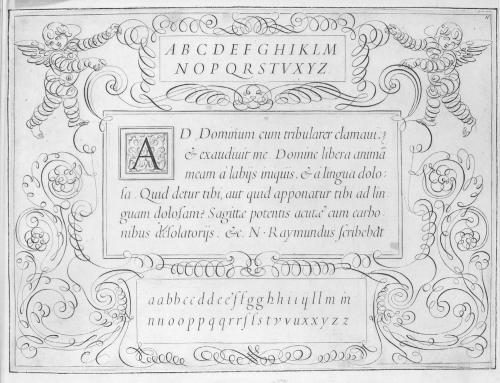 A B C D E F G H I K L M
N O P Q R S T V X Y Z
AD Dominum cum tribularer clamaui:
& exaudiuit me Domine libera animã
meam á labijs iniquis, & á lingua dolo-
sa. Quid detur tibi, aut quid apponatur tibi ad lin
guam dolosam? Sagittæ potentis acutæ cum carbo-
nibus desolatorijs. &c. N. Raymundus scribebat
a a b b c c d d e e f f g g h h i i y l l m m
n n o o p p q q r r ſ s t v v u x x y z z